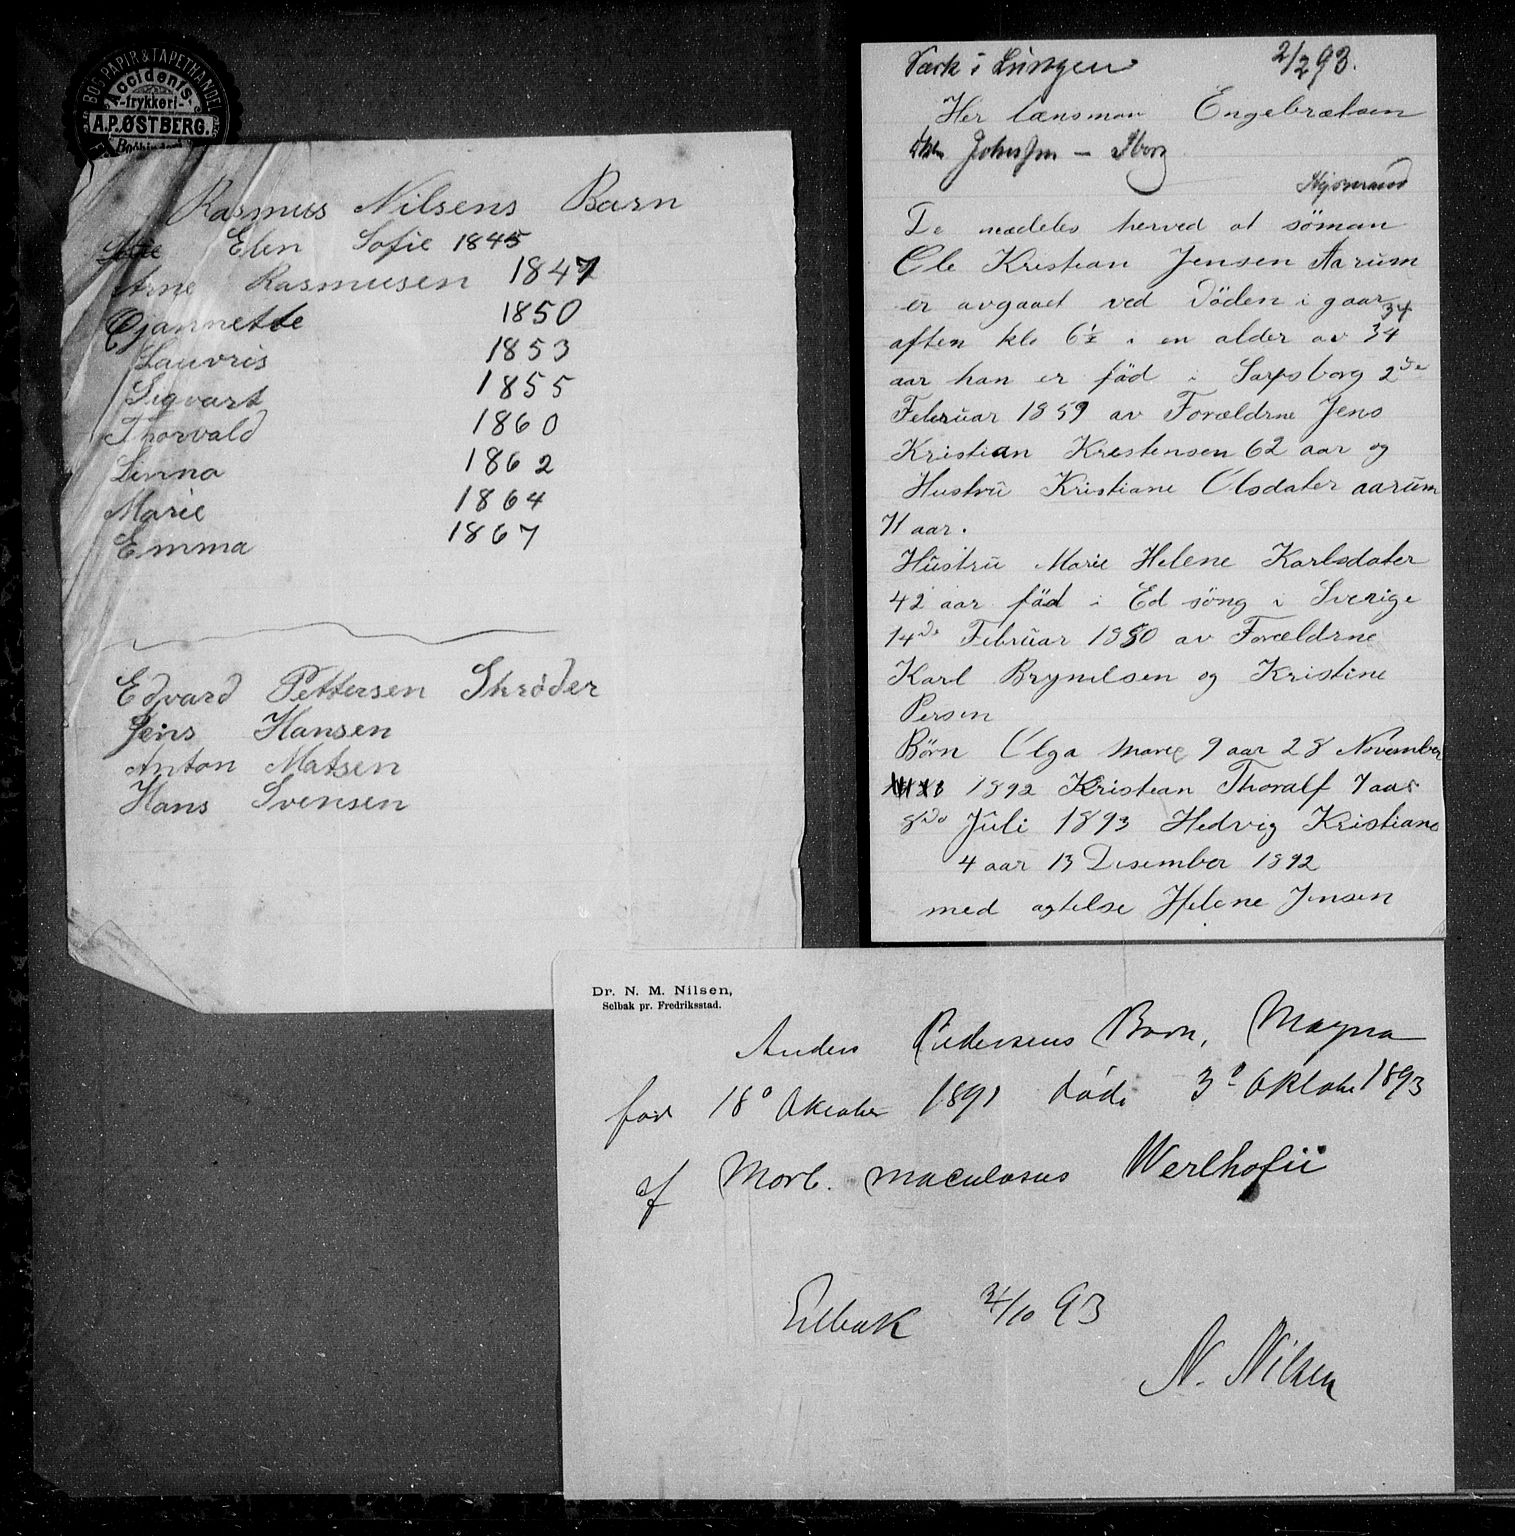 BOG PAPIR & TAPETHANDEL
Accidents-
trykkeri-
A.P. ØSTBERG.
Bogbinderi
Rasmus Nilsens Barn
Elen Sofie 1845
Arne Rasmusen 1847
Gjannette 1850
Lauvris 1853
Sigvart 1855
Thorvald 1860
Linna 1862
Marie 1864
Emma 1867
Edvard Pettersen Skrøder
Jens Hansen
Anton Matsen
Hans Svensen
Værk i Lungen 2/2 93.
Her lænsman Engebrætsen
De mædeles herved at söman
Ole Kristian Jensen Aarum
er avgaaet ved Döden i gaar
34
aften kle 6½ i en alder av 34
aar han er föd i Sarpsborg 2de
Februar 1859 av Forældrne Jens
Kristian Krestensen 62 aar og
Hustru Kristiane Olsdater aarum
71 aar.
Hustru Marie Helene Karlsdater
42 aar föd i Ed söng i Sverige
14de Februar 1850 av Forældrne
Karl Brynelsen og Kristine
Persen
Børn Olga Marie 9 aar 28 November
1892 Kristian Thoralf 7 aar
8de Juli 1893 Hedvig Kristiane
4 aar 13 Desember 1892
med agtelse Helene Jensen
Dr. N. M. Nilsen,
Selbak pr. Fredriksstad.
Anders Pedersens Barn, Magna
født 18° Oktober 1891 døde 3° Oktober 1893
af Morb. maculosus Werlhofii
Selbak 4/10 93
N. Nilsen